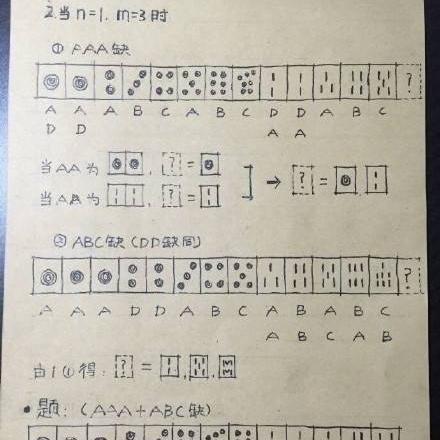 2. 当 n=1. m=3 时
① AAA 缺
?
A A A B C A B C D D A B C
D D A A
当 AA 为 , ? =
当 AA 为 , ? = → ? =
② ABC 缺 (DD 缺同)
?
A A A D D A B C A B A B C
A B C A B
由 1 ④ 得: ? = , ,
• 题: (AAA + ABC 缺)